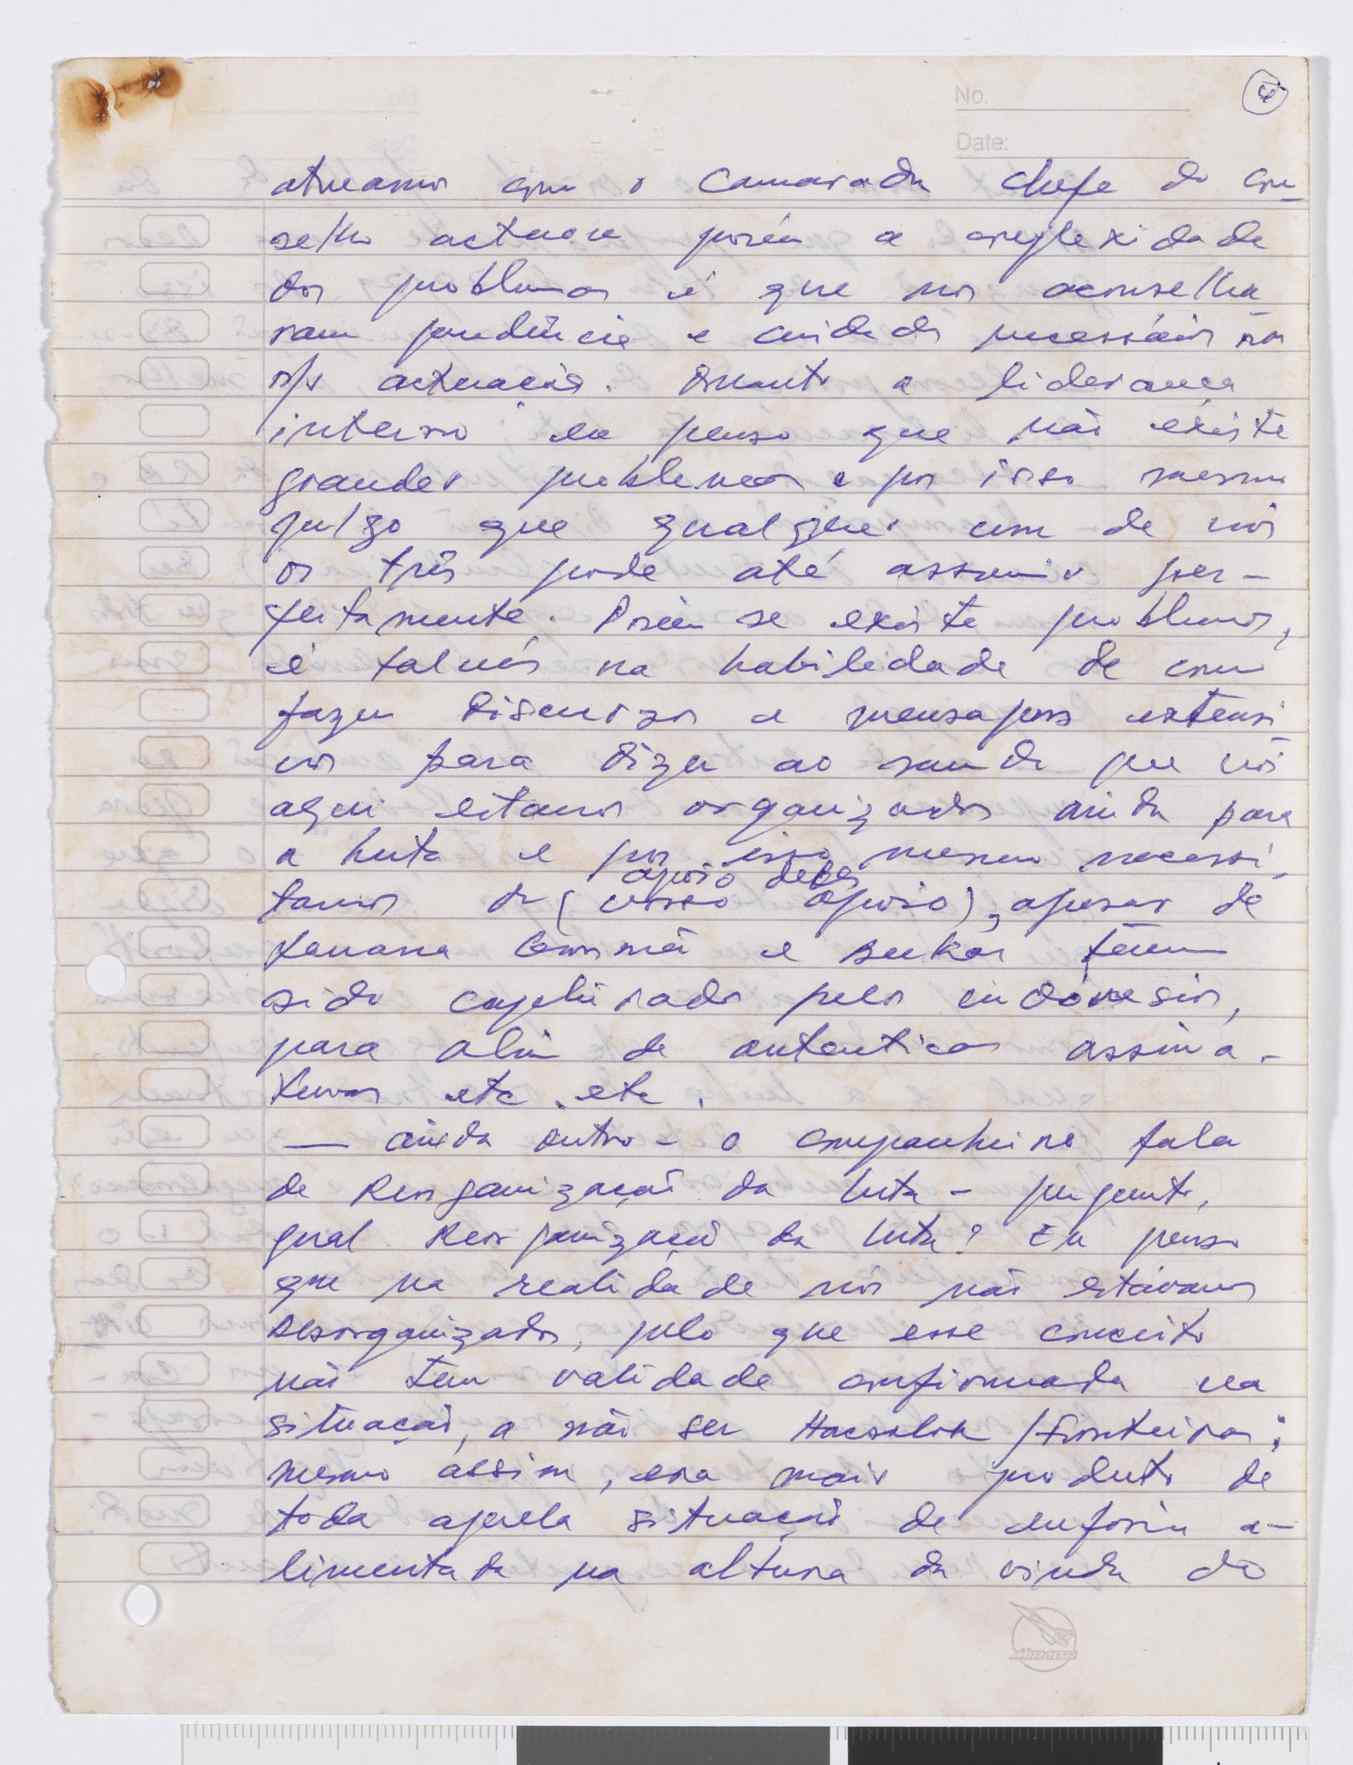 No.
Date:
atueamos com o Camarada chefe do con-
selho actuou porém a complexidade
dos problemas é que nos aconselha
ram prudência e cuidados necessários na
n/s actuação. Quanto a liderança
interna eu penso que não existe
grandes problemas e por isso mesmo
julgo que qualquer um de nós
os três pode até assumir per-
feitamente. Porém se existe problemas,
é talvés na habilidade de como
fazer Discursos e mensagens extensi
vos para dizer ao mundo que nós
aqui estamos organizados ainda para
a luta e por isso mesmo necessi-
apoio deles
tamos de (vosso apoio), apesar de
Konis e Bukar têem
sido capturados pelos indonésios,
para além de autenticas assina-
turas etc. etc.
— ainda outro - o companheiro fala
de Reorganização da luta - pergunto,
qual Reorganização da luta? Eu penso
que na realidade nós não estávamos
Desorganizados, pelo que esse conceito
não tem validade confirmada na
situação, a não ser /Fronteiras;
mesmo assim, era mais produto de
toda aquela situação de euforia a-
limentada na altura da vinda do